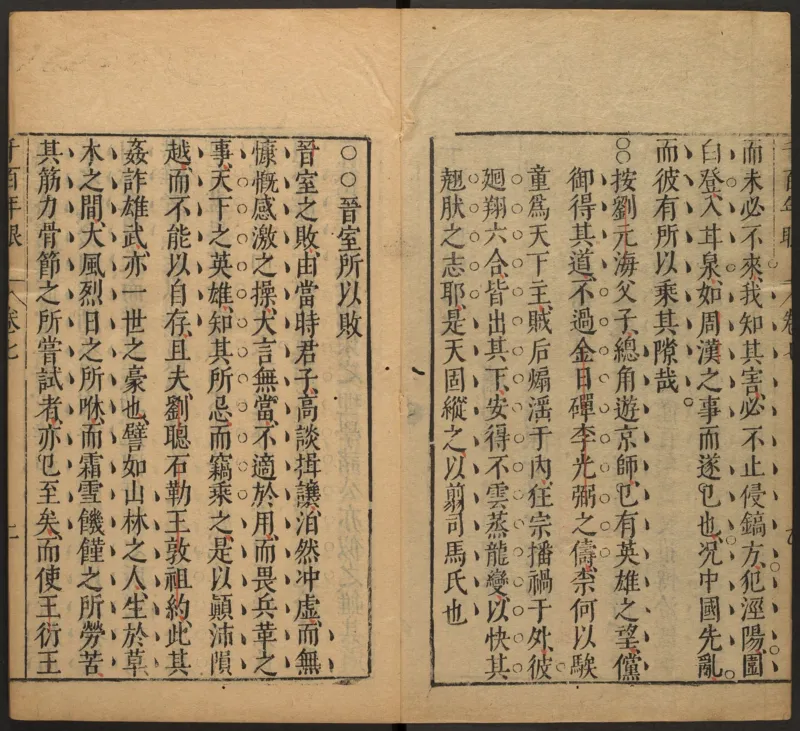 而未必不來我知其害必不止侵鎬方犯涇陽圍
白登入甘泉如周漢之事而遂已也況中國先亂
而彼有所以乘其隙哉
按劉元海父子總角遊京師已有英雄之望儻
御得其道不過金日磾李光弼之儔柰何以騃
童爲天下主賊后煽滛于內狂宗播禍于外彼
廻翔六合皆出其下安得不雲蒸龍變以快其
翹肰之志耶是天固縱之以翦司馬氏也
卷七
晉室所以敗
晉室之敗由當時君子高談揖讓泊然冲虛而無
慷慨感激之操大言無當不適於用而畏兵革之
事天下之英雄知其所忌而竊乘之是以顚沛隕
越而不能以自存且夫劉聰石勒王敦祖約此其
姦詐雄武亦一世之豪也譬如山林之人生於草
木之間大風烈日之所咻而霜雪饑饉之所勞苦
其筋力骨節之所嘗試者亦已至矣而使王衍王
千百年眼 卷七